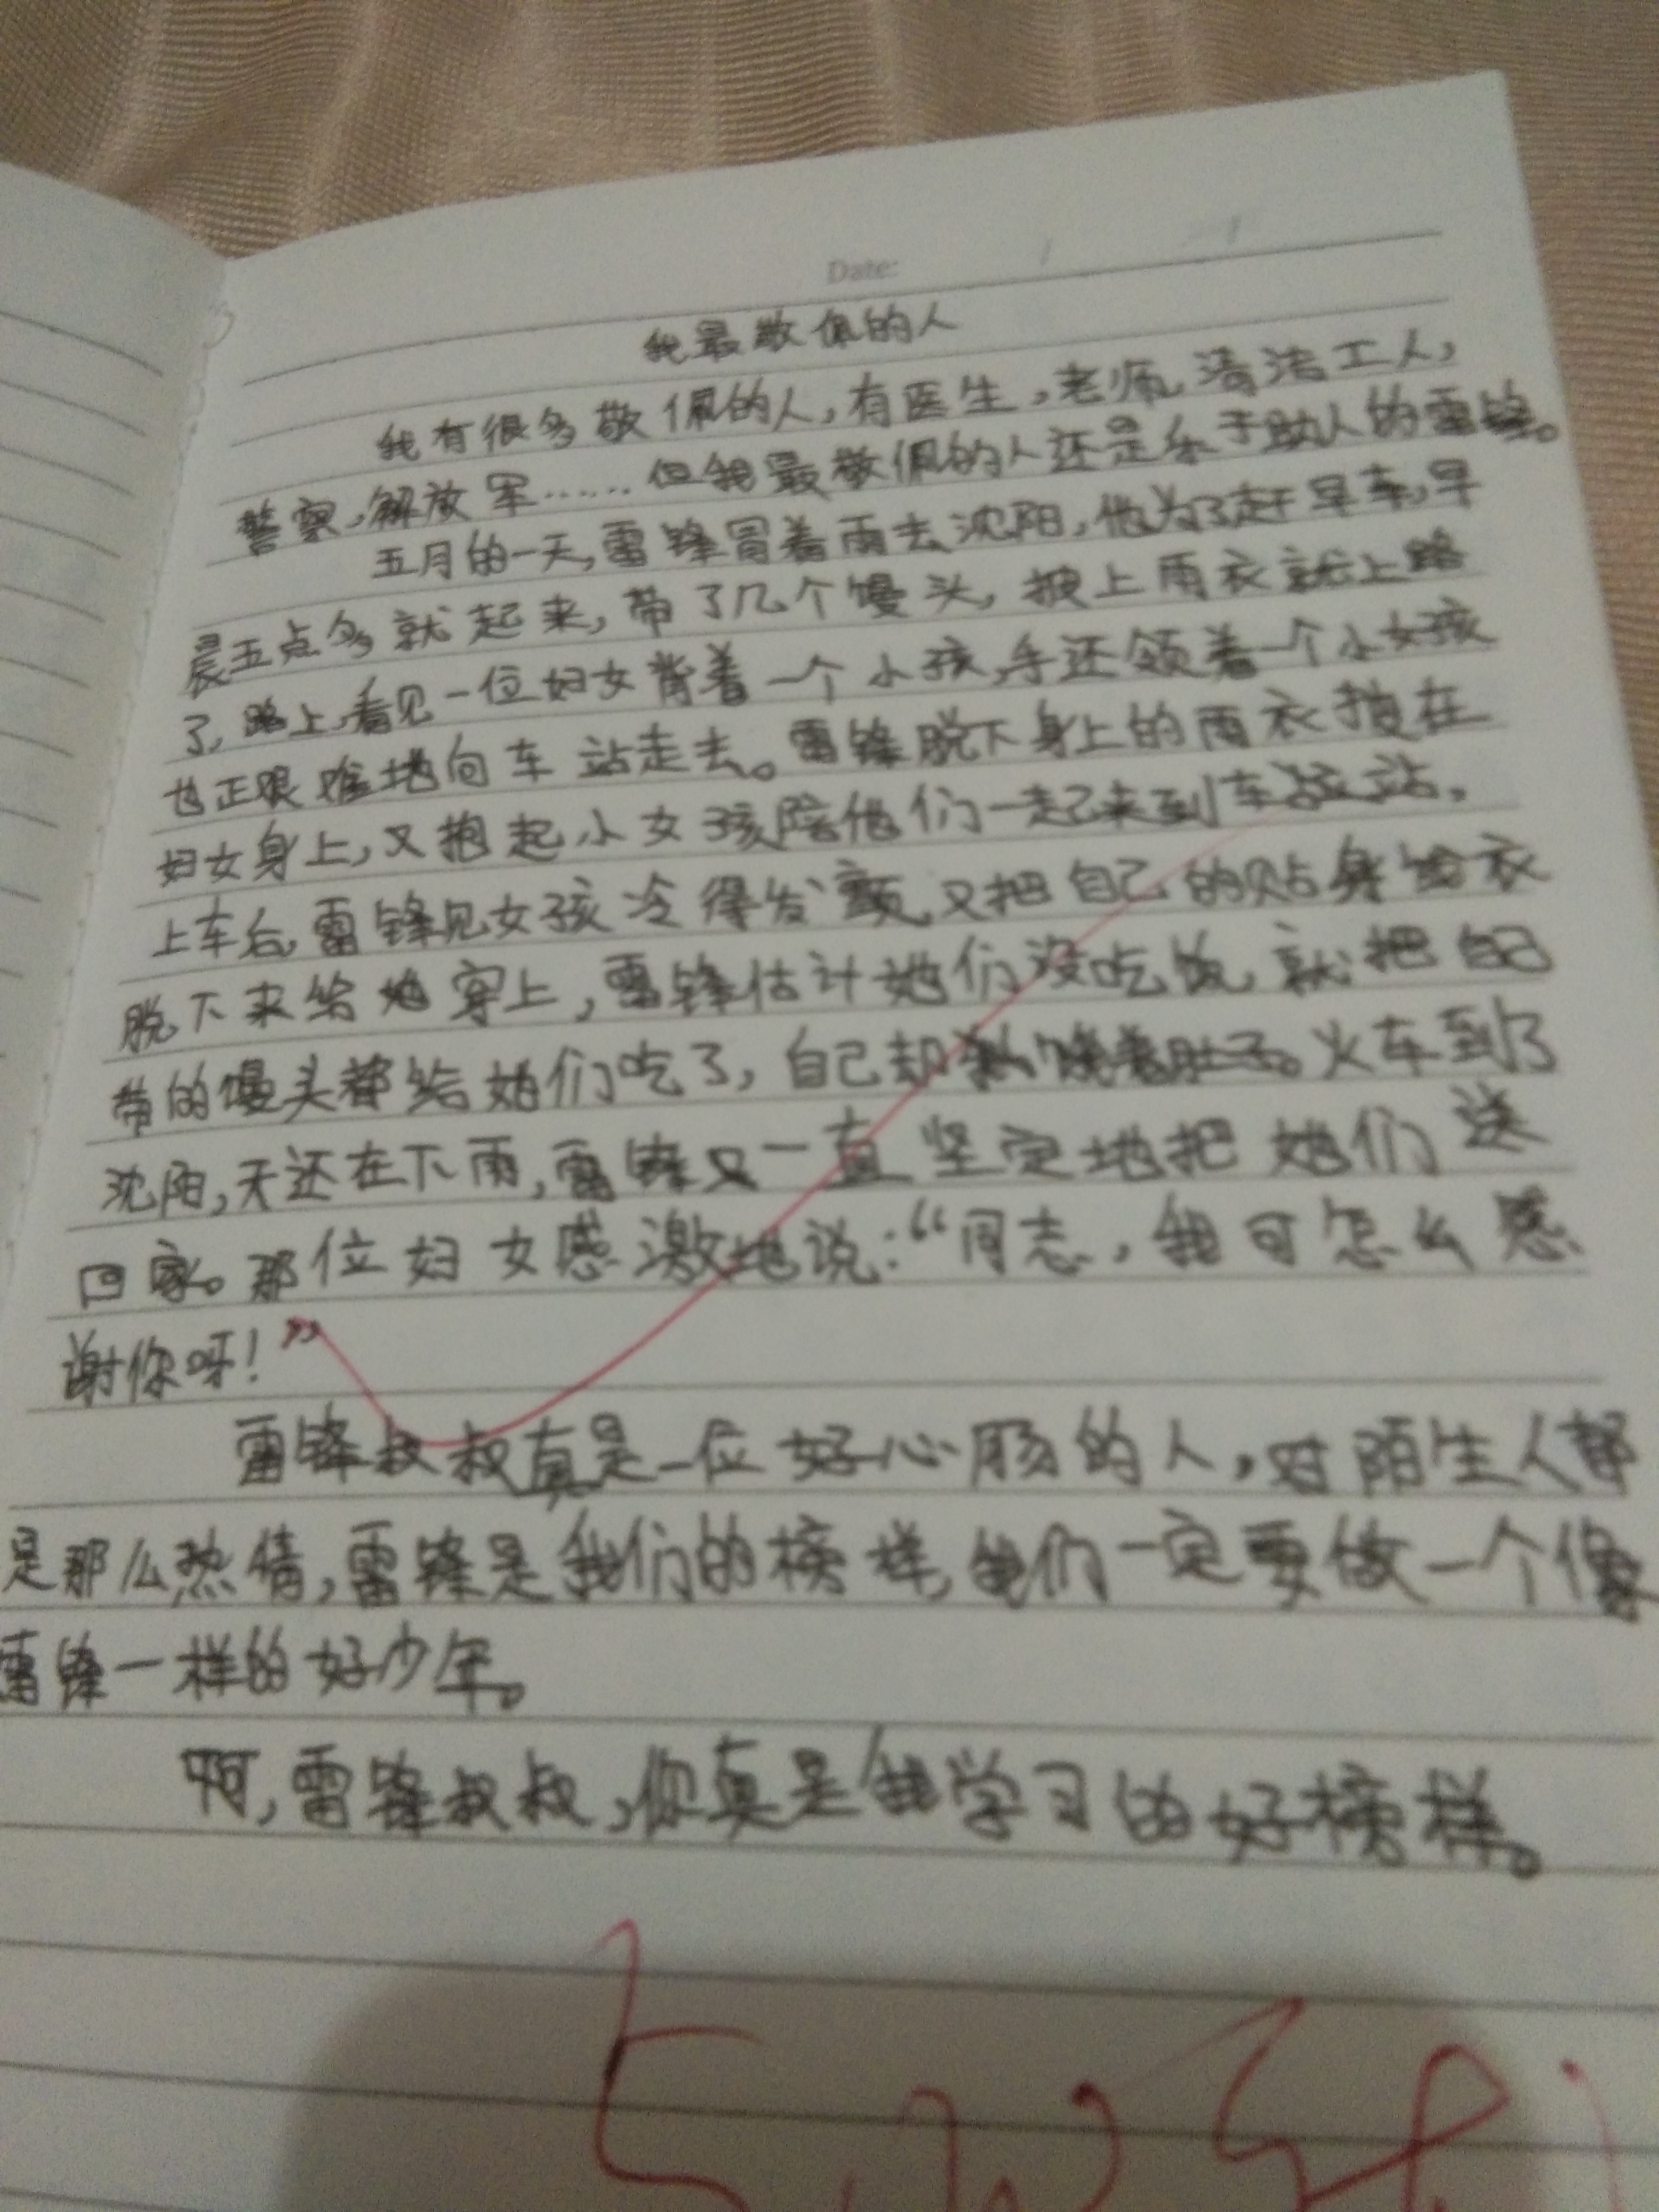 Date: / /
我最敬佩的人
我有很多敬佩的人,有医生,老师,清洁工人,
警察,解放军……但我最敬佩的人还是乐于助人的雷锋。
五月的一天,雷锋冒着雨去沈阳,他为了赶早车,早
晨五点多就起来,带了几个馒头,披上雨衣就上路
了,路上,看见一位妇女背着一个小孩,手还领着一个小女孩
也正艰难地向车站走去。雷锋脱下身上的雨衣披在
妇女身上,又抱起小女孩陪他们一起来到车站。
上车后,雷锋见女孩冷得发颤,又把自己的贴身衣
脱下来给她穿上,雷锋估计她们没吃饭,就把自己
带的馒头都给她们吃了,自己却饿着肚子。火车到了
沈阳,天还在下雨,雷锋又一直坚定地把她们送
回家。那位妇女感激地说:“同志,我可怎么感
谢你呀!”
雷锋叔叔真是一位好心肠的人,对陌生人都
是那么热情,雷锋是我们的榜样,我们一定要做一个像
雷锋一样的好少年。
啊,雷锋叔叔,你真是我学习的好榜样。